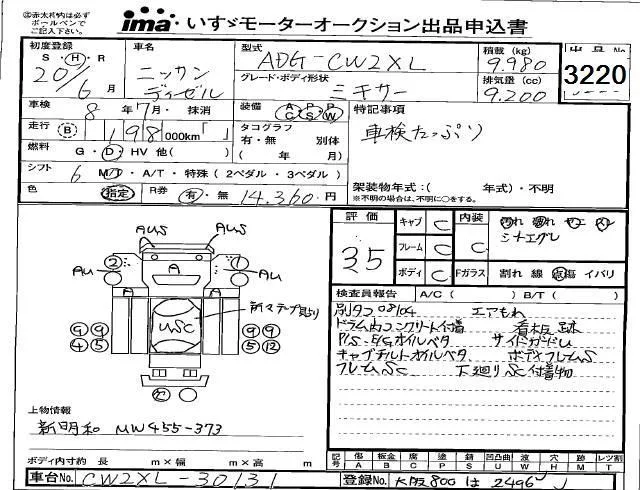 ㊟赤太枠内は必ず
ボールペンで
ご記入下さい。
ima いすゞモーターオークション出品申込書
初度登録 車名 型式 積載(kg) 出品No.
S・H・R ADG-CW2XL 9.980
20 6月 ニッサンディーゼル グレード・ボディ形状 ミキサー 排気量(cc) 9.200 3220
車検 8年7月・抹消 装備 AC PS PW 特記事項
走行 B 198 000km「 」 タコグラフ 有・無 別体 車検たっぷり
燃料 G・D・HV 他( ) ( 年 月)
シフト 6 M/D・A/T・特殊(2ペダル・3ペダル)
架装物年式:( 年式)・不明
色 指定 R券 有・無 14.360円 ※不明の場合は、不明に○をする。
評価 キャブ C 内装
35 フレーム C C シートエグレ
ボディ C Fガラス 割れ 線 点傷 イバリ
AUS AUS
② ①
AU A A AU
検査員報告 A/C( ) B/T( )
別タコ 08/04 エアもれ
ドラム内コンクリート付着 看板跡
P/S・E/Gオイルベタ サイドガードU
キャブチルトオイルベタ ボディフレームS
フレームSC 下廻りSC付着物
新マテープ貼り
USC
⑨⑨ ⑨⑨
④⑤ ⑤⑫
上物情報
新明和 MW455-373
ボディ内寸約 長 m×幅 m×高 m
記号 傷 板金 腐 塗 錆 凹凸曲 波 穴 跡 レツ割
A B C P S U W H M T
車台No. CW2XL-30131 登録No. 大阪800は2496